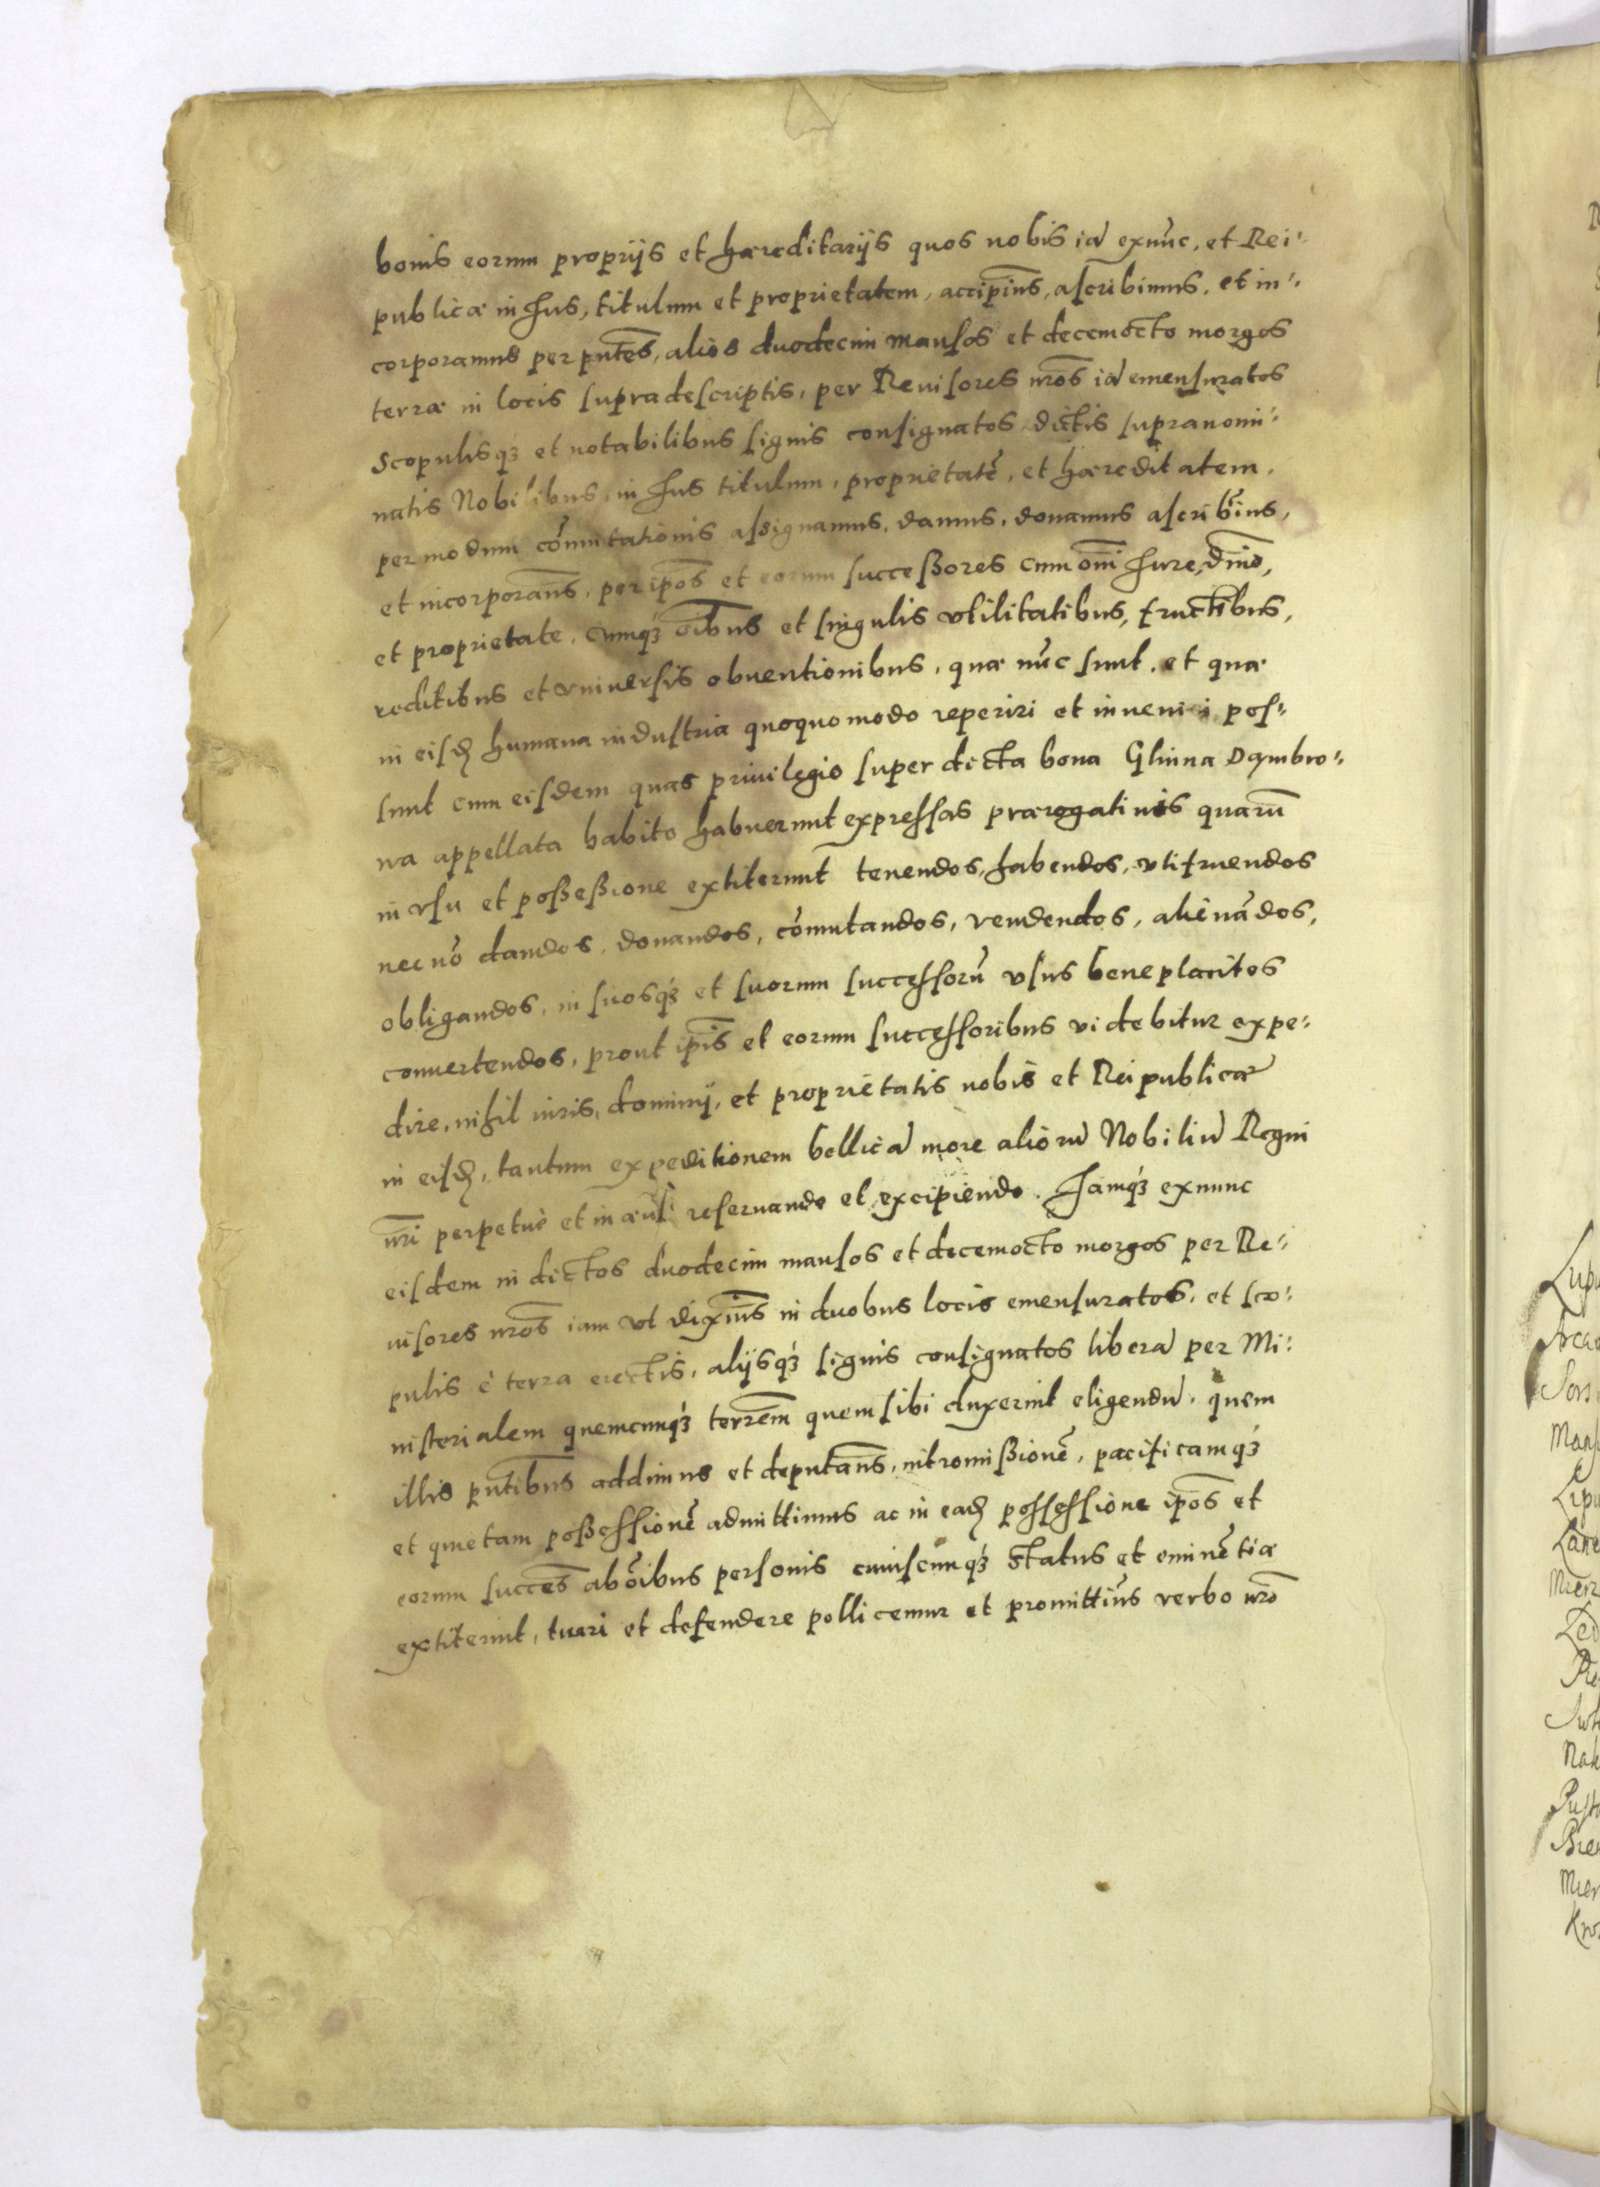 bonis eorum proprijs et hæreditarijs quos nobis iã exnũc, et Rei-
publicæ in Jus, titulum et proprietatem, accipim̃s, ascribimus, et in-
corporamus per p̃ntes, alios duodecim mansos et decemocto morgos
terræ in locis supradescriptis, per Reuisores nr̃os iã emensuratos
scopulisq́ꝫ et notabilibus signis consignatos dictis supranomi-
natis Nobilibus, in Jus titulum, proprietatẽ, et hæreditatem,
per modum cõmutationis assignamus, damus, donamus ascribim̃s,
et incorporam̃s, per ip̃os et eorum successores cum om̃i Jure, d̃nio,
et proprietate, cumq́ꝫ om̃ibus et singulis vtilitatibus, fructibus,
reditibus et vniuersis obuentionibus, quæ nũc sunt, et quæ
in eisd̃ humana industria quoquomodo reperiri et inveniri pos-
sunt cum eisdem quas priuilegio super dicta bona Glinna Dambro-
wa appellata habito habuerunt expressas prærogatiuis quarũ
in vsu et possessione extiterunt tenendos, habendos, vtifruendos
nec nõ dandos, donandos, cõmutandos, vendendos, alienãdos,
obligandos, in suosq́ꝫ et suorum successorũ vsus beneplacitos
conuertendos, prout ip̃is et eorum successoribus videbitur expe-
dire, nihil iuris, dominij, et proprietatis nobis et Reipublicæ
in eisd̃, tantum expeditionem bellicã more aliorũ Nobiliũ Regni
nr̃i perpetuè et in æuũ reseruando et excipiendo. Jamq́ꝫ exnunc
eisdem in dictos duodecim mansos et decemocto morgos per Re-
uisores nr̃os iam vt diximũs in duobus locis emensuratos, et sco-
pulis è terra erectis, alijsq́ꝫ signis consignatos liberã per Mi-
nisterialem quemcunq́ꝫ terrẽm quem sibi duxerint eligendũ, quem
illis p̃ntibus addimus et deputam̃s, intromissionẽ, pacificamq́ꝫ
et quietam possessionẽ admittimus ac in ead̃ possessione ip̃os et
eorum succẽs ab õibus personis cuiuscunq́ꝫ status et eminẽtiæ
extiterint, tueri et defendere pollicemur et promittim̃s verbo nr̃o